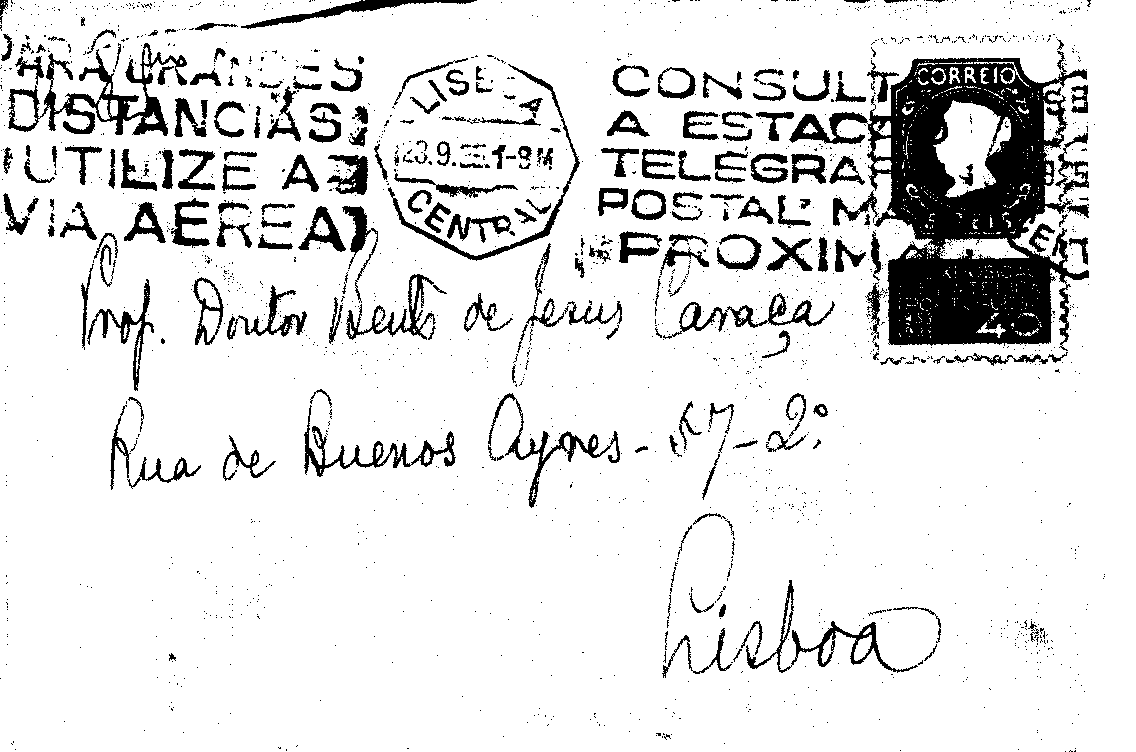 PARA GRANDES
DISTANCIAS
UTILIZE A
VIA AEREA
LISBOA
23.9. 1-9M
CENTRAL
CONSULT
A ESTAC
TELEGRAF
POSTAL MA
PROXIM
CORREIO
5 REIS
40
Prof. Doutor Bento de Jesus Caraça
Rua de Buenos Ayres - 57-2º
Lisboa